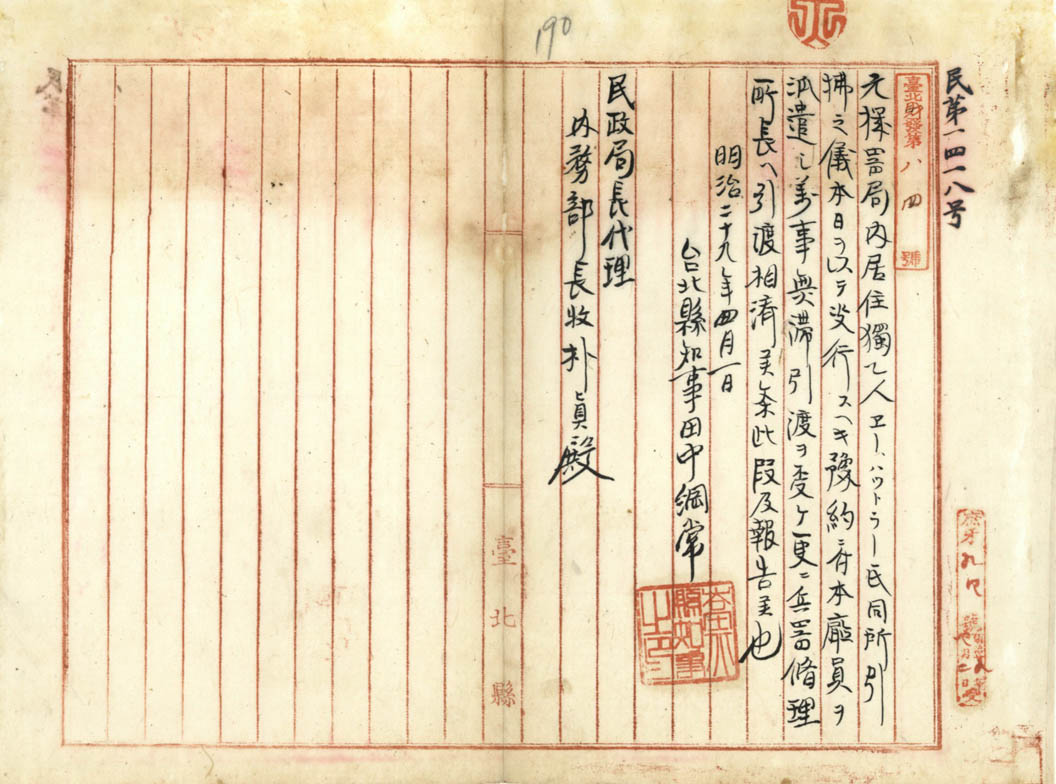 190
民第一四一八号
臺北財發第八四號
元機器局内居住獨乙人エー、ハットラー氏同所引
拂之儀本日ヲ以テ実行スヘキ豫約ニ付本廰員ヲ
派遣シ萬事無滞引渡ヲ受ケ更ニ兵器脩理
所長ヘ引渡相済候条此段及報告候也
明治二十九年四月一日
台北縣知事田中綱常
民政局長代理
内務部長牧朴眞殿
臺北縣